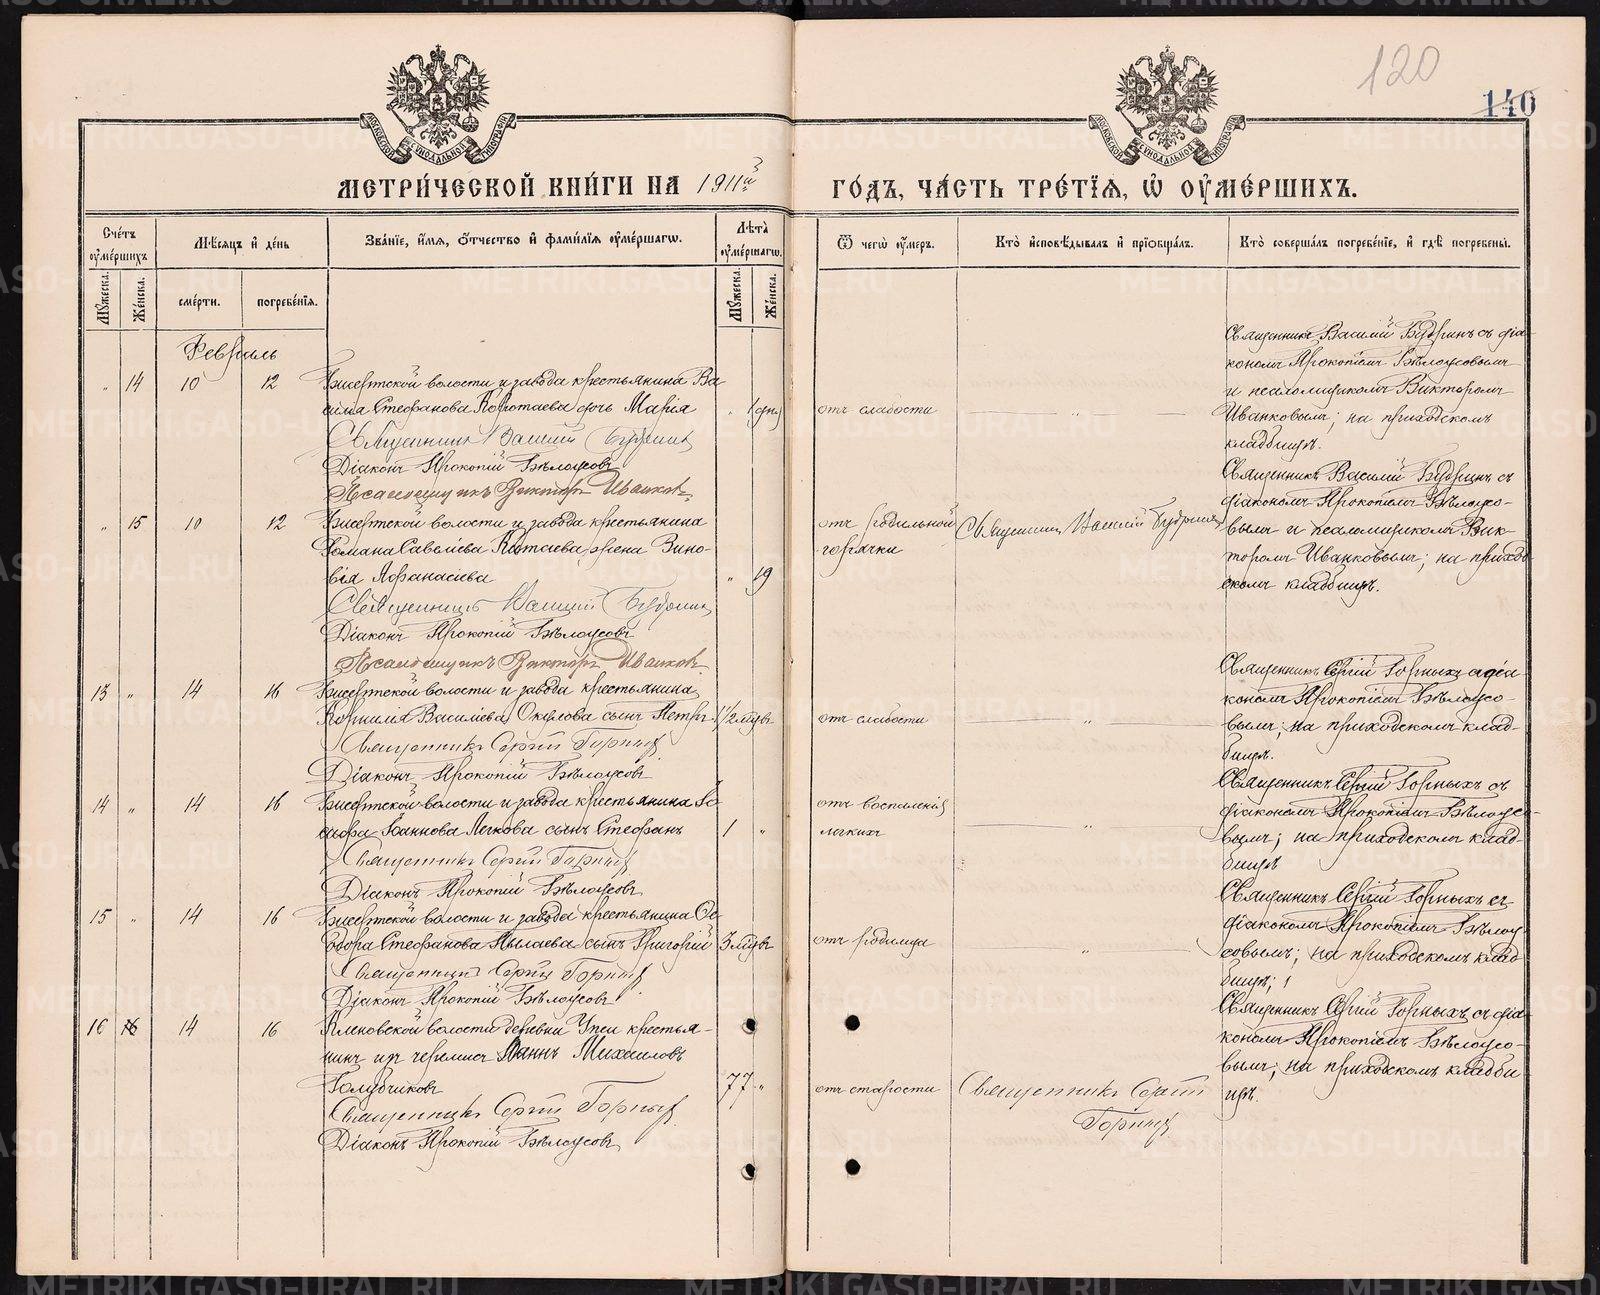 120
140
МОСКОВСКОЙ СѴНОДАЛЬНОЙ ТИПОГРАФІИ
МОСКОВСКОЙ СѴНОДАЛЬНОЙ ТИПОГРАФІИ
МЕТРИ́ЧЕСКОЙ КНИ́ГИ НА 1913й
ГО́ДЪ, ЧА́СТЬ ТРЕ́ТІѦ, Ѽ ОУ҆МЕ́РШИХЪ.
Сче́тъ оу҆ме́ршихъ
Мѣ́сяцъ и҆ де́нь
Зва́нїе, и҆́мѧ, ѻ҆́тчество и҆ фами́лїѧ оу҆ме́ршагѡ.
Лѣ́та оу҆ме́ршагѡ.
Ѿ чегѡ̀ оу҆́меръ.
Кто̀ и҆сповѣ́дывалъ и҆ прїѡбща́лъ.
Кто̀ соверша́лъ погребе́нїе, и҆ гдѣ̀ погребены̀.
Мꙋ́жеска.
Же́нска.
сме́рти.
погребе́нїѧ.
Мꙋ́жеска.
Же́нска.
Февраль
" 14 10 12 Бисертской волости и завода крестьянина Ва
силія Стефанова Коротаева дочь Марія " 1 дн.
Священникъ Василій Будринъ
Діаконъ Прокопій Бѣлоусовъ
Псаломщикъ Викторъ Иванковъ
отъ слабости "
Священникъ Василій Будринъ съ діа-
кономъ Прокопіемъ Бѣлоусовымъ
и псаломщикомъ Викторомъ
Иванковымъ; на приходскомъ
кладбищѣ.
" 15 10 12 Бисертской волости и завода крестьянина
Романа Савеліева жена Зино-
вія Аѳанасіева " 19
Священникъ Василій Будринъ
Діаконъ Прокопій Бѣлоусовъ
Псаломщикъ Викторъ Иванковъ
отъ родильной
горячки
Священникъ Василій Будринъ
Священникъ Василій Будринъ съ
діакономъ Прокопіемъ Бѣлоусо-
вымъ и псаломщикомъ Вик-
торомъ Иванковымъ; на приход-
скомъ кладбищѣ.
13 " 14 16 Бисертской волости и завода крестьянина
Корнилія Василіева Окулова сынъ Петръ 1½ мѣс.
Священникъ Сергій Горныхъ
Діаконъ Прокопій Бѣлоусовъ
отъ слабости "
Священникъ Сергій Горныхъ съ діа-
кономъ Прокопіемъ Бѣлоусо-
вымъ; на приходскомъ клад-
бищѣ.
14 " 14 16 Бисертской волости и завода крестьянина Іо
сифа Іоаннова Легкова сынъ Стефанъ 1 "
Священникъ Сергій Горныхъ
Діаконъ Прокопій Бѣлоусовъ
отъ воспаленія
легкихъ "
Священникъ Сергій Горныхъ съ
діакономъ Прокопіемъ Бѣлоусо-
вымъ; на приходскомъ клад-
бищѣ
15 " 14 16 Бисертской волости и завода крестьянина Ѳе
одора Стефанова Пылаева сынъ Григорій 3 мѣс.
Священникъ Сергій Горныхъ
Діаконъ Прокопій Бѣлоусовъ
отъ родимца "
Священникъ Сергій Горныхъ съ
діакономъ Прокопіемъ Бѣлоу-
совымъ; на приходскомъ клад
бищѣ;
16 16 14 16 Кленовской волости деревни крестья-
нинъ изъ черемисъ Іоаннъ Михаиловъ
Голубчиковъ 77 "
Священникъ Сергій Горныхъ
Діаконъ Прокопій Бѣлоусовъ
отъ старости
Священникъ Сергій
Горныхъ
Священникъ Сергій Горныхъ съ діа-
кономъ Прокопіемъ Бѣлоусо-
вымъ; на приходскомъ кладби
щѣ.
METRIKI.GASO-URAL.RU